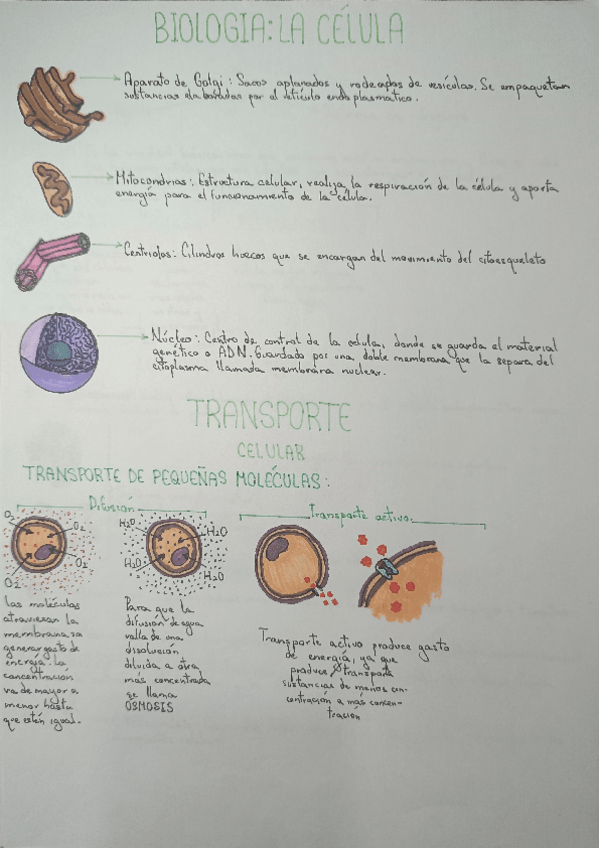 BIOLOGIA: LA CÉLULA
Aparato de Golgi: Sacos aplanados y rodeados de vesículas. Se empaquetan
sustancias elaboradas por el retículo endoplasmático.
Mitocondrias: Estructura celular, realiza la respiración de la célula y aporta
energía para el funcionamiento de la célula.
Centriolos: Cilindros huecos que se encargan del movimiento del citoesqueleto
Núcleo: Centro de control de la célula, donde se guarda el material
genético o ADN. Guardado por una doble membrana que la separa del
citoplasma llamada membrana nuclear.
TRANSPORTE
CELULAR
TRANSPORTE DE PEQUEÑAS MOLÉCULAS:
Difusión
Transporte activo
O2
O2
O2
O2
H2O
H2O
H2O
H2O
Las moléculas
atraviesan la
membrana sin
generar gasto de
energía. La
concentración
va de mayor a
menor hasta
que estén igual.
Para que la
difusión de agua
vaya de una
disolución
diluida a otra
más concentrada
se llama
OSMOSIS
Transporte activo produce gasto
de energía, ya que
produce transporta
sustancias de menos con-
centración a más concen-
tración